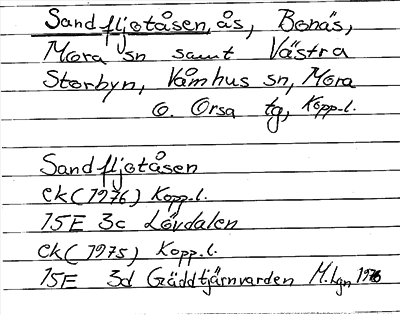 Sandfljotåsen, ås, Bonäs,
Mora sn samt Västra
Storbyn, Våmhus sn, Mora
o. Orsa tg, Kopp.l.
Sandfljotåsen
ek (1976) Kopp.l.
15E 3c Lövdalen
ek (1975) Kopp.l.
15E 3d Gäddtjärnvarden M.Lgn 1976